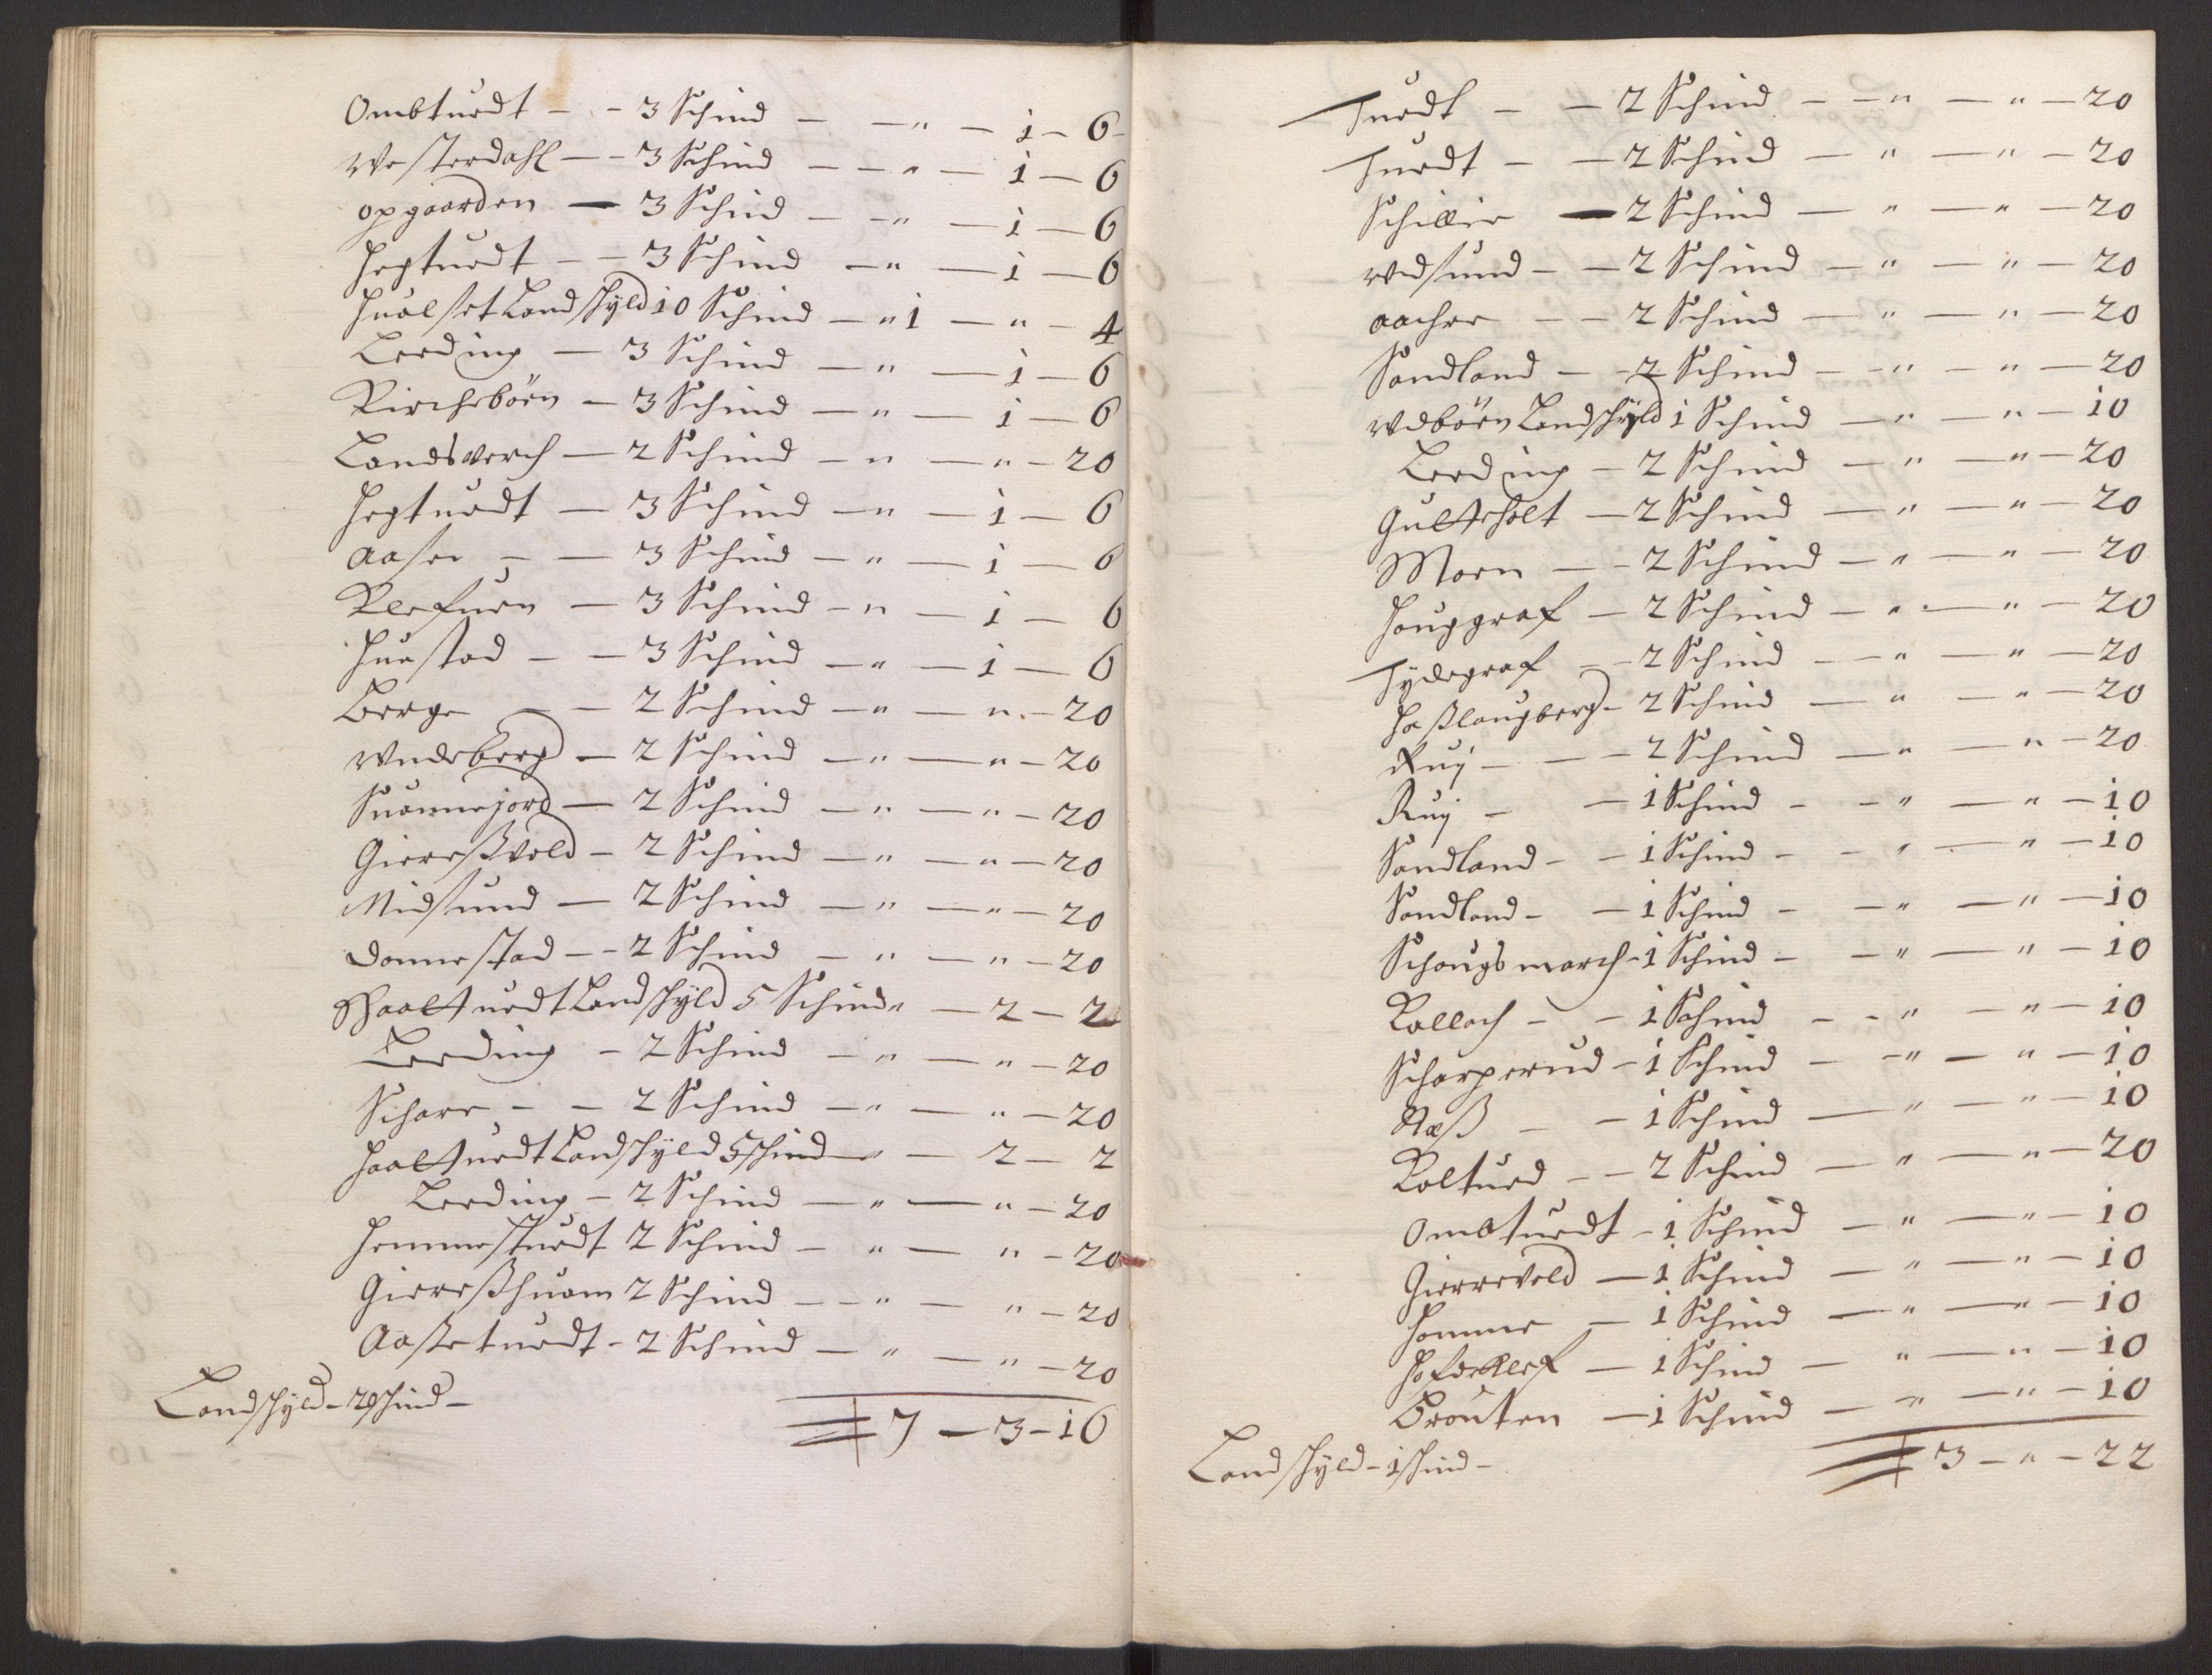 Ombtuedt - - 3 Schind - - " - 1 - 6 -
Westerdahl - - 3 Schind - - " - 1 - 6
opgaarden - 3 Schind - - " - 1 - 6
Hegtuedt - - 3 Schind - " - 1 - 6
Hualset Landschyld 10 Schind - " 1 - " - 4
Leeding - 3 Schind - " - 1 - 6
Kircheböen - 3 Schind - " - 1 - 6
Landsverch - 2 Schind - " - " - 20
Hegtuedt - 3 Schind - " - 1 - 6
Aasen - - 3 Schind - " - 1 - 6
Klefuen - 3 Schind - " - 1 - 6
Huestad - - 3 Schind - " - 1 - 6
Berge - - 2 Schind - " - " - 20
Wndeberg - 2 Schind - " - " - 20
Suannejord - 2 Schind - " - " - 20
Giereßvold - 2 Schind - " - " - 20
Midsund - 2 Schind - " - " - 20
Donnestad - - 2 Schind - " - " - 20
Haaltuedt Landschyld 5 Schind " - 2 - 2
Leeding - 2 Schind - " - " - 20
Schare - - 2 Schind - " - " - 20
Haaltuedt Landschyld 5 schind - " - 2 - 2
Leeding - 2 Schind - " - " - 20
Hemmestuedt 2 Schind - " - " - 20
Giereßhuam 2 Schind - - " - " - 20
Aaßetuedt - 2 Schind - " - " - 20
Landschyld - 20 schind -
7 - 3 - 16
Tuedt - - 2 Schind - - " - " - 20
Tuedt - - 2 Schind - " - " - 20
Schillie - 2 Schind - " - " - 20
Wedsund - - 2 Schind - " - " - 20
Aachre - - 2 Schind - " - " - 20
Sandland - - 2 Schind - - " - " - 20
Wdböen Landschyld 1 Schind - " - " - 10
Leeding - 2 Schind - " - " - 20
Gulteholt - 2 Schind - " - " - 20
Moen - - 2 Schind - " - " - 20
Houggraf - 2 Schind - " - " - 20
Tydegraf - - 2 Schind - " - " - 20
Haßlougberg - 2 Schind - " - " - 20
Ruj - - - 2 Schind - " - " - 20
Ruj - - 1 Schind - - " - " - 10
Sandland - - 1 Schind - - " - " - 10
Sandland - - 1 Schind - - " - " - 10
Schougsmarch - 1 Schind - - " - " - 10
Kallach - - 1 Schind - - " - " - 10
Scharperud - 1 Schind - - " - " - 10
Næß - - 1 Schind - " - " - 10
Koltued - - 2 Schind - " - " - 20
Ombtuedt - 1 Schind - " - " - 10
Gierrevold - 1 Schind - " - " - 10
Homme - 1 Schind - " - " - 10
Hofdeklef - 1 Schind - " - " - 10
Brouten - 1 Schind - " - " - 10
Landschyld - 1 schind -
3 - " - 22